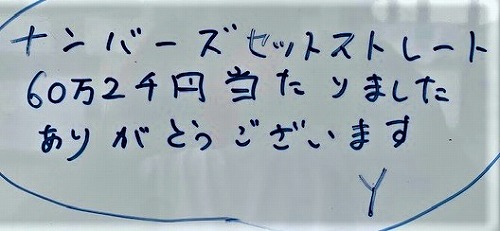 ナンバーズセットストレート
60万2千円当たりました
ありがとうございます
Y